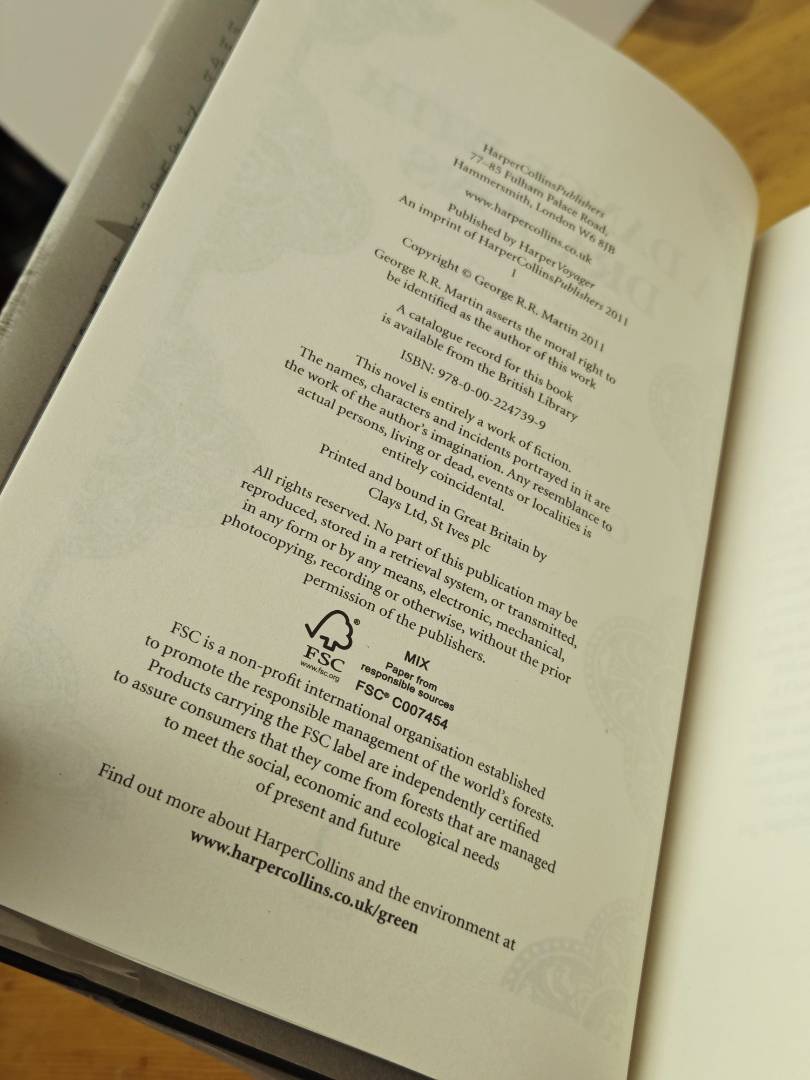 HarperCollinsPublishers
77–85 Fulham Palace Road,
Hammersmith, London W6 8JB
www.harpercollins.co.uk
Published by HarperVoyager
An imprint of HarperCollinsPublishers 2011
1
Copyright © George R.R. Martin 2011
George R.R. Martin asserts the moral right to
be identified as the author of this work
A catalogue record for this book
is available from the British Library
ISBN: 978-0-00-224739-9
This novel is entirely a work of fiction.
The names, characters and incidents portrayed in it are
the work of the author's imagination. Any resemblance to
actual persons, living or dead, events or localities is
entirely coincidental.
Printed and bound in Great Britain by
Clays Ltd, St Ives plc
All rights reserved. No part of this publication may be
reproduced, stored in a retrieval system, or transmitted,
in any form or by any means, electronic, mechanical,
photocopying, recording or otherwise, without the prior
permission of the publishers.
®
FSC
www.fsc.org
MIX
Paper from
responsible sources
FSC® C007454
FSC is a non-profit international organisation established
to promote the responsible management of the world's forests.
Products carrying the FSC label are independently certified
to assure consumers that they come from forests that are managed
to meet the social, economic and ecological needs
of present and future
Find out more about HarperCollins and the environment at
www.harpercollins.co.uk/green